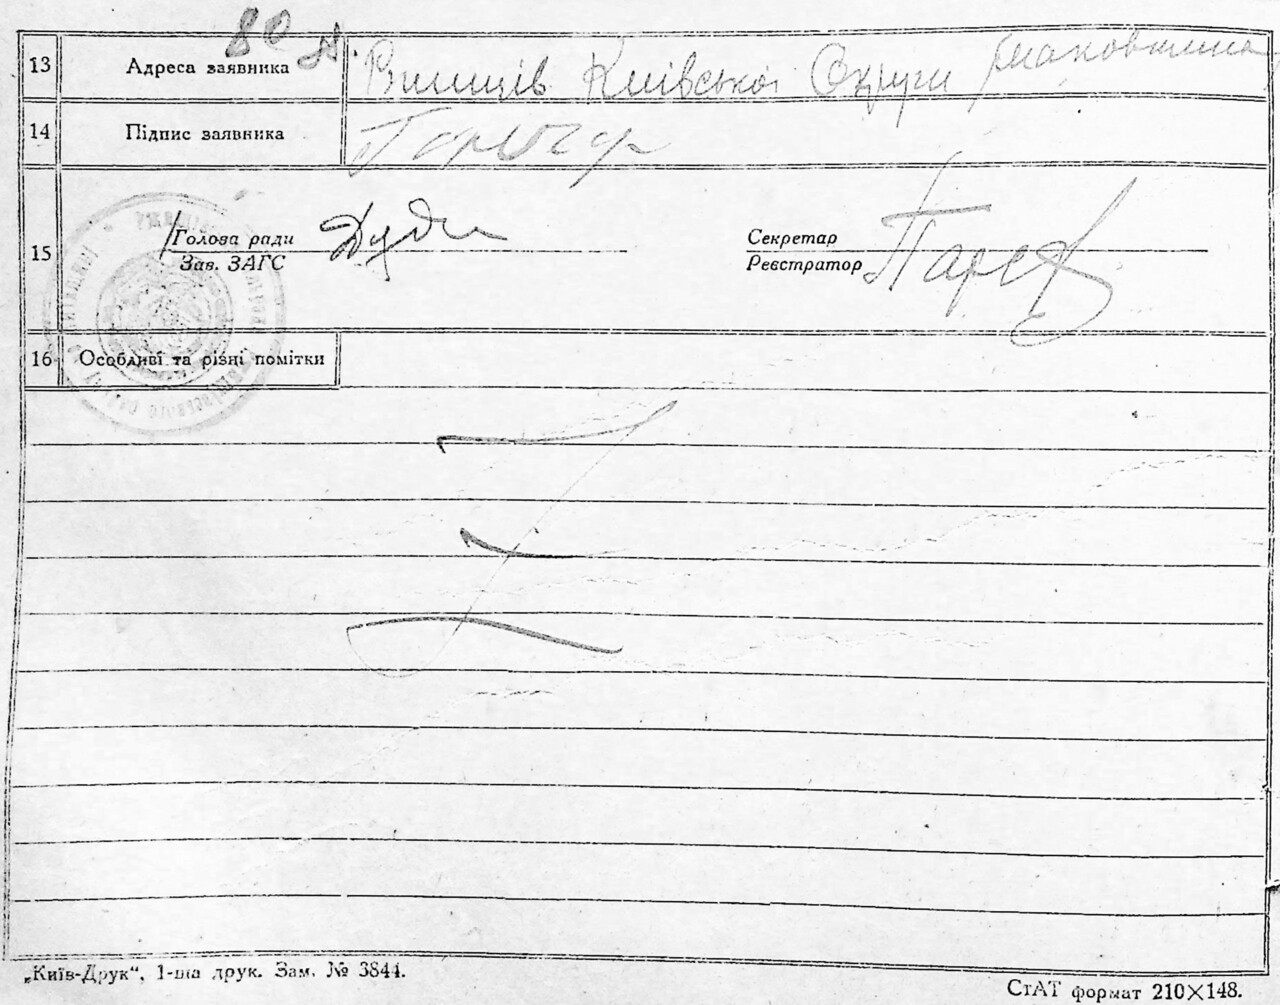 80 зв.
13 Адреса заявника Ржищів Київської Округи
14 Підпис заявника
15 Голова ради Дуда Секретар
Зав. ЗАГС Реєстратор
16 Особливі та різні помітки
„Київ-Друк“, 1-ша друк. Зам. № 3844.
СтАТ формат 210×148.